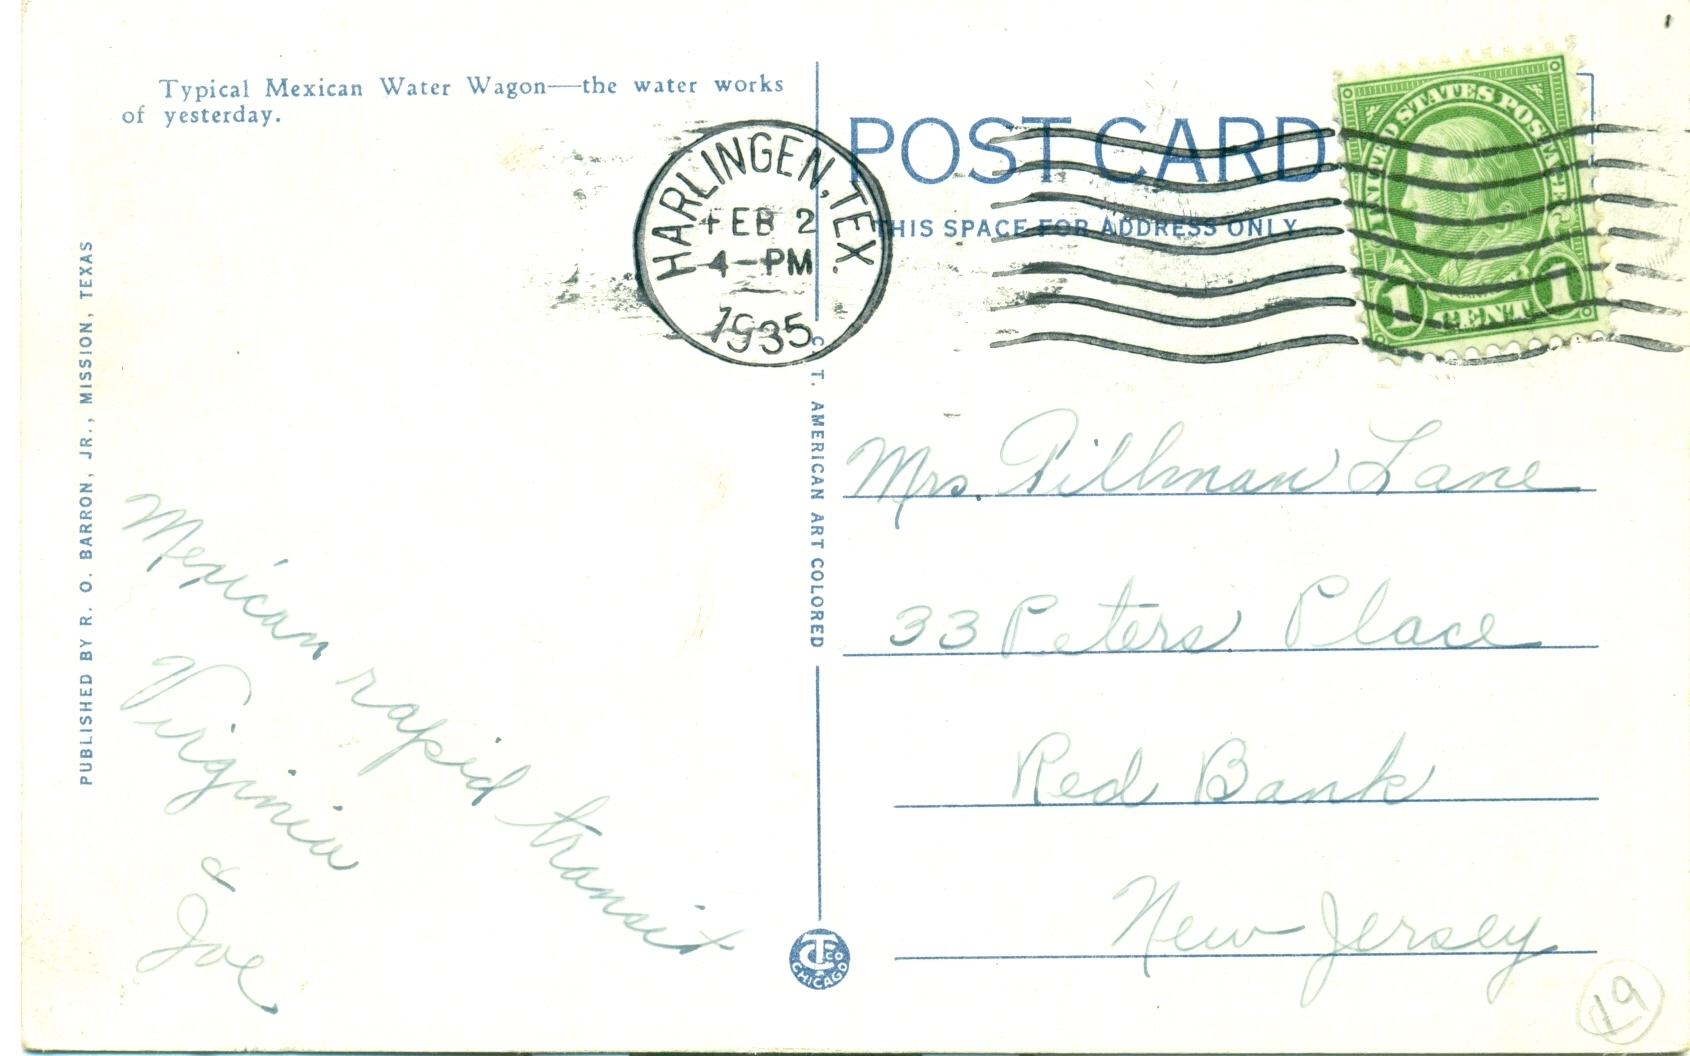 Typical Mexican Water Wagon—the water works
of yesterday.
PUBLISHED BY R. O. BARRON, JR., MISSION, TEXAS
Mexican rapid transit
Virginia
&
Joe
HARLINGEN, TEX.
FEB 2
4-PM
1935
C. T. AMERICAN ART COLORED
CTCO
CHICAGO
POST CARD
THIS SPACE FOR ADDRESS ONLY
UNITED STATES POSTAGE
1 CENT 1
Mrs. Tillman Lane
33 Peters Place
Red Bank
New Jersey
19